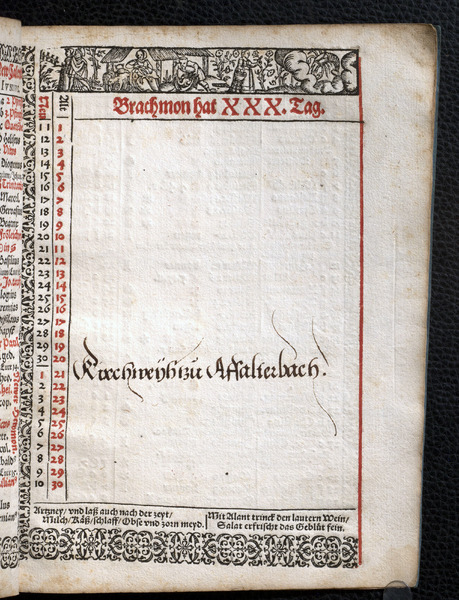 Brachmon hat XXX. Tag.
New Alt
11 1
12 2
13 3
14 4
15 5
16 6
17 7
18 8
19 9
20 10
21 11
22 12
23 13
24 14
25 15
26 16
27 17
28 18
29 19
30 20
1 21
2 22
3 23
4 24
5 25
6 26
7 27
8 28
9 29
10 30
Kirchweÿh zu Affalterbach.
Artzney/ vnd laß auch nach der zeyt/
Milch/ Käß/ schlaff/ Obs vnd zorn meyd.
Mit Alant trinck den lautern Wein/
Salat erfrischt das Geblüt fein.